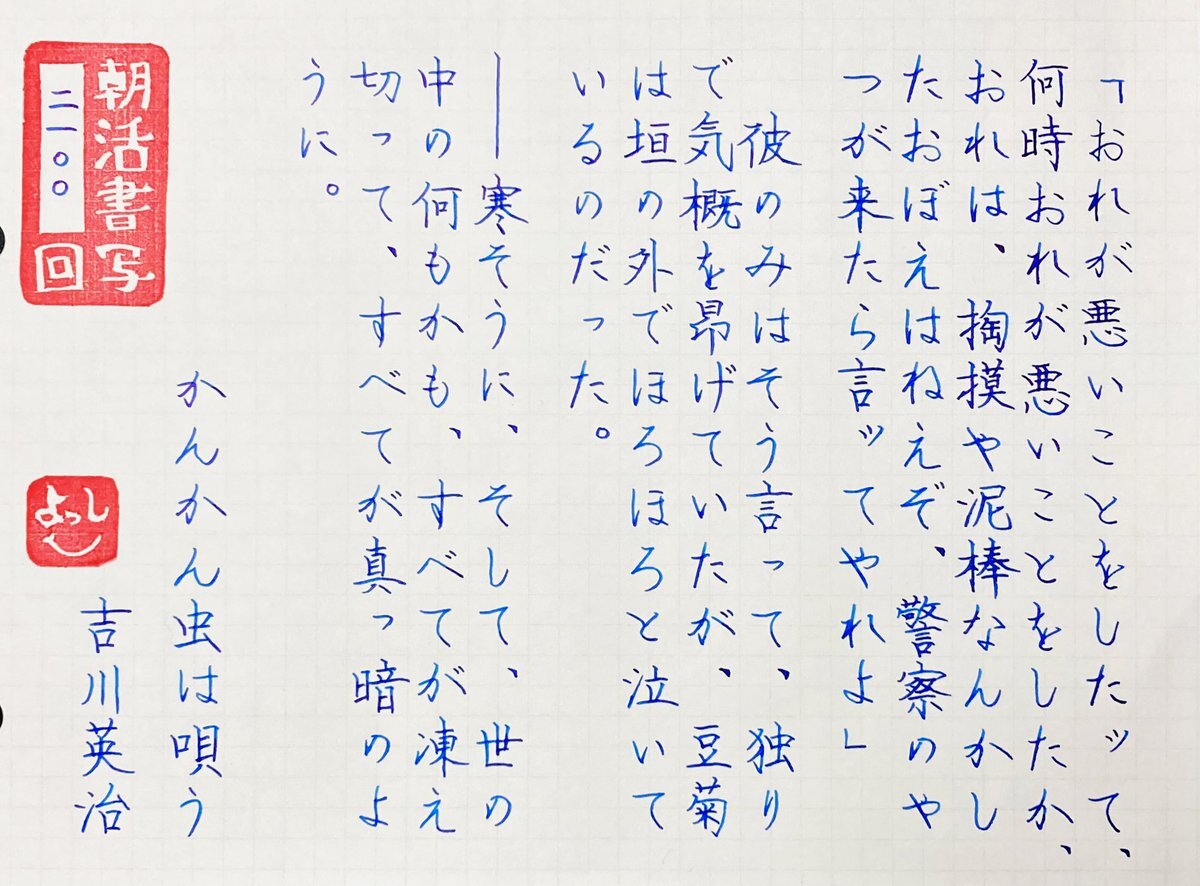 「おれが悪いことをしたッて、
何時おれが悪いことをしたか、
おれは、掏摸や泥棒なんかし
たおぼえはねえぞ、警察のや
つが来たら言ッてやれよ」
彼のみはそう言って、独り
で気概を昂げていたが、豆菊
は垣の外でほろほろと泣いて
いるのだった。
――寒そうに、そして、世の
中の何もかも、すべてが凍え
切って、すべてが真っ暗のよ
うに。
かんかん虫は唄う
吉川英治
朝活書写
二一〇〇
回
よっし